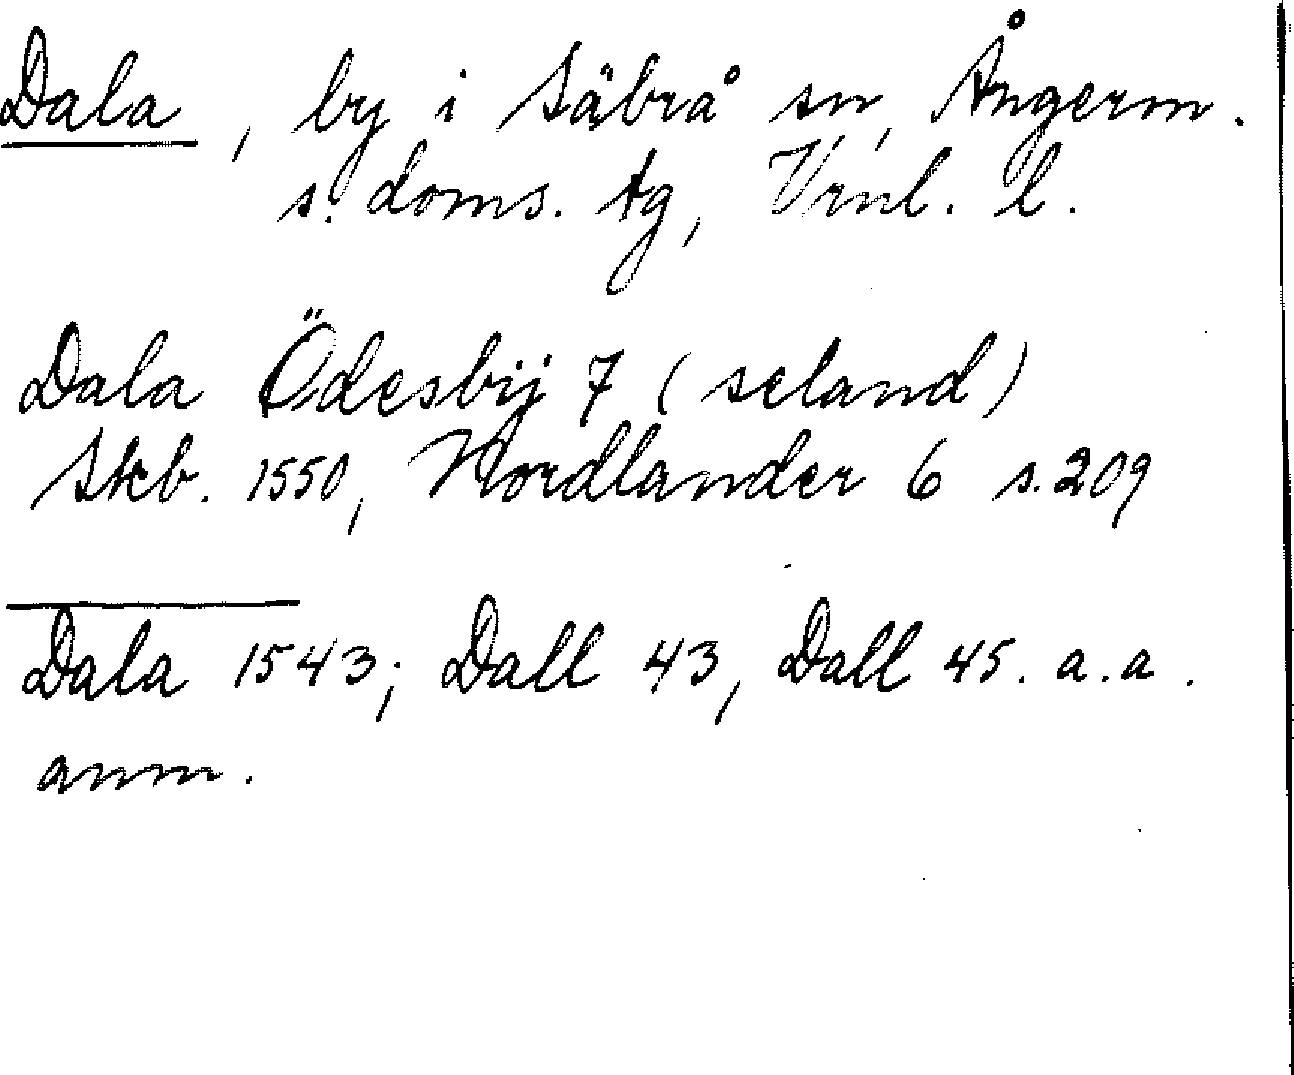 Dala, by i Säbrå sn, Ångerm.
s. doms. tg, Vrnl. l.
Dala Ödesbÿ 7 (seland)
Skb. 1550, Nordlander 6 s. 209
Dala 1543; Dall 43, Dall 45. a.a.
anm.